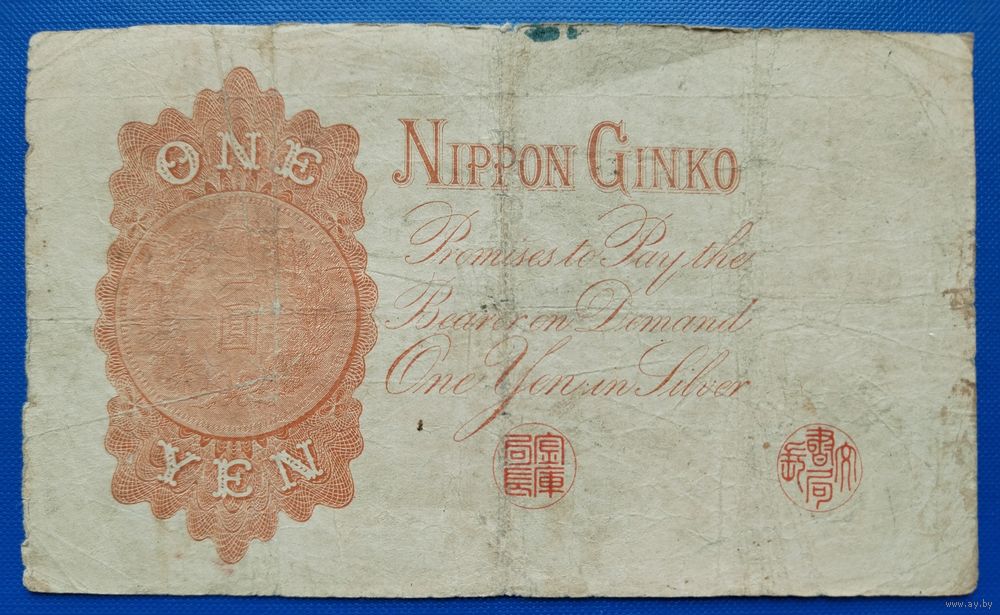 ONE
YEN
一
圓
NIPPON GINKO
Promises to Pay the
Bearer on Demand
One Yen in Silver
金庫局長
文書局長
www.ay.by